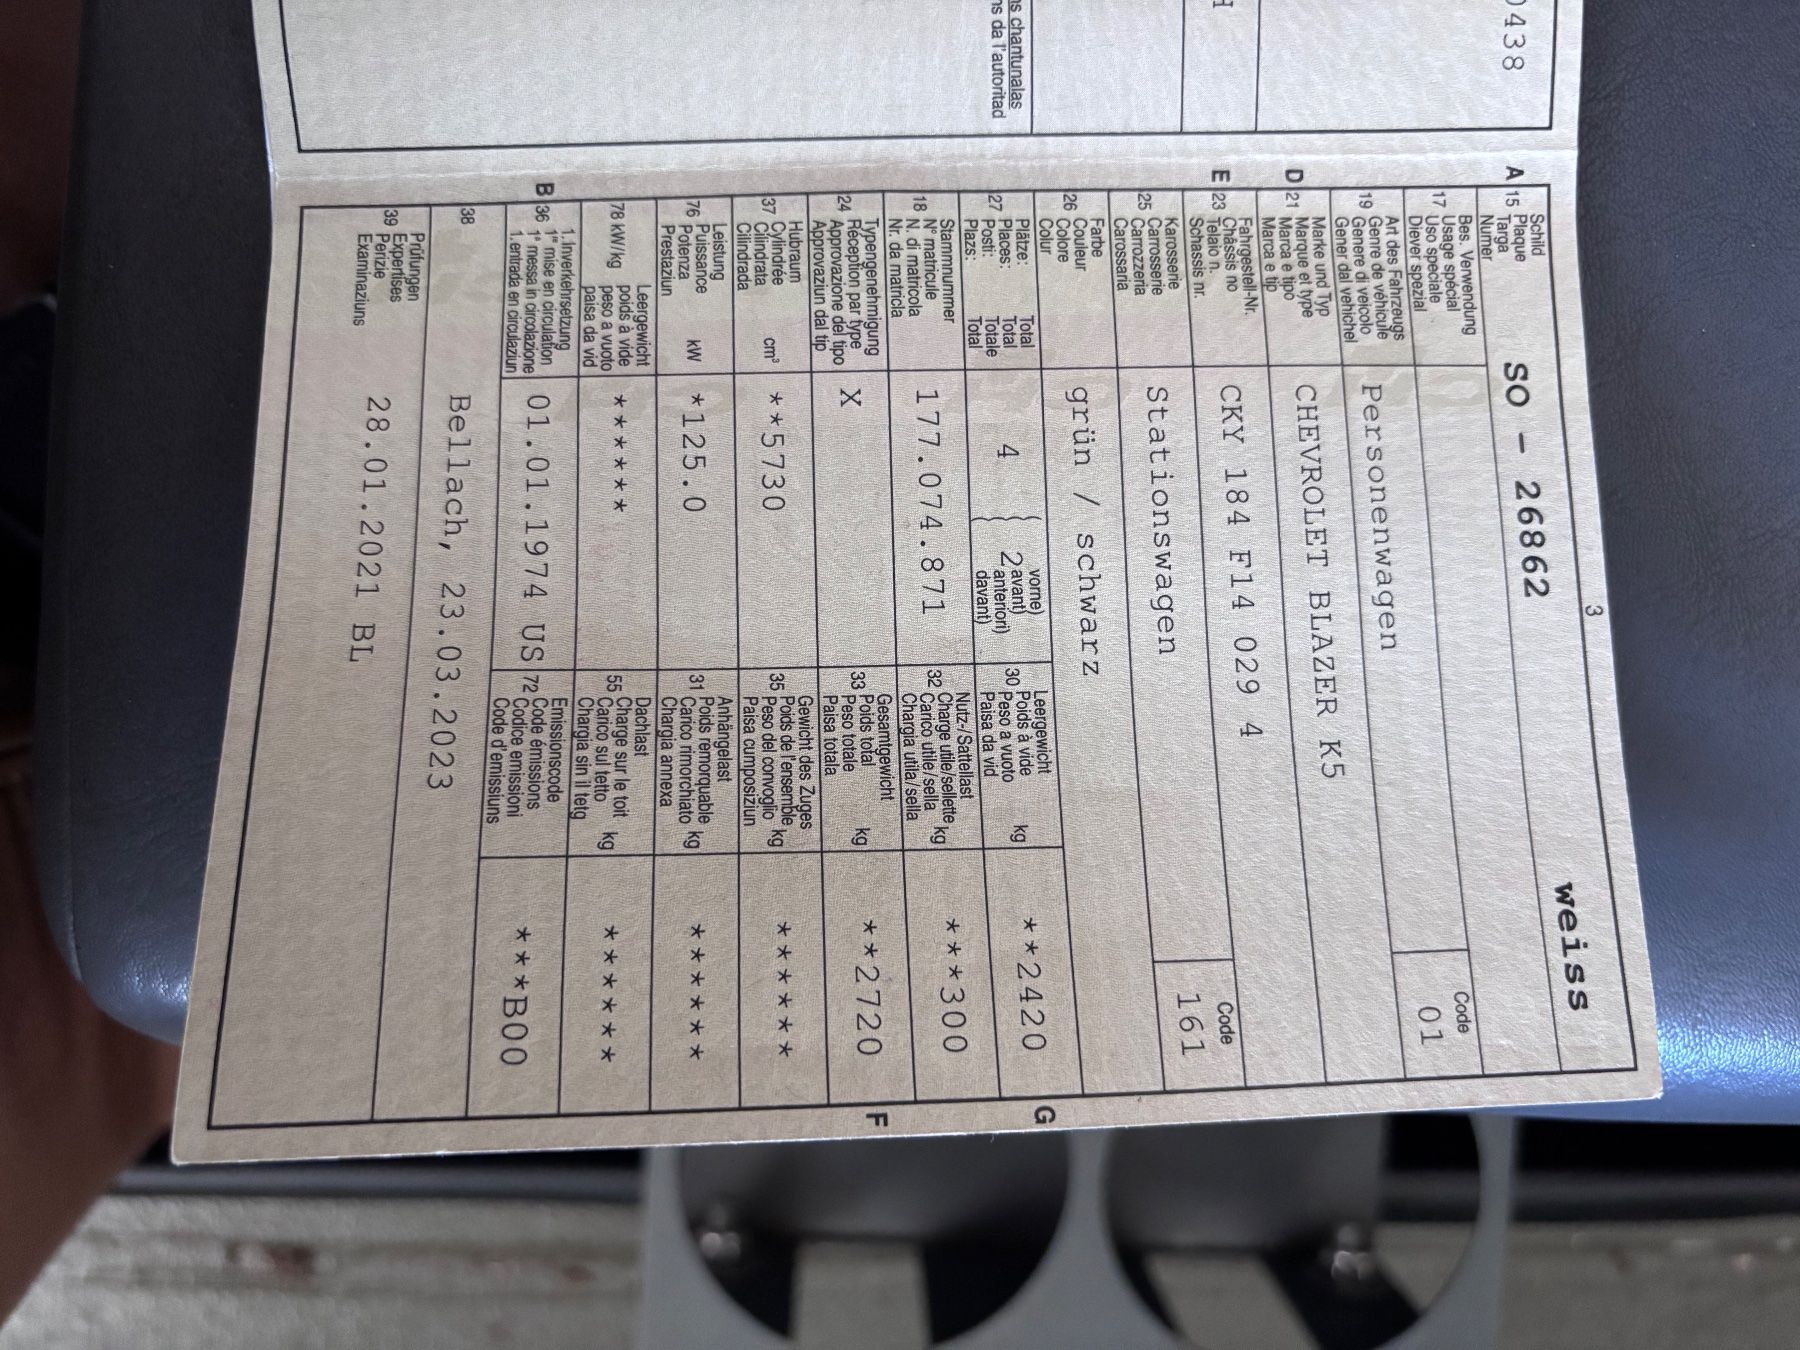 0438
H
s chantunalas
ns da l'autoritad
3
weiss
A 15 Schild
Plaque
Targa
Numer
SO - 26862
17 Bes. Verwendung
Usage spécial
Uso speciale
Diever spezial
19 Art des Fahrzeugs
Genre de véhicule
Genere di veicolo
Gener dal vehichel
Personenwagen
Code
01
D 21 Marke und Typ
Marque et type
Marca e tipo
Marca e tip
CHEVROLET BLAZER K5
E 23 Fahrgestell-Nr.
Châssis no
Telaio n.
Schassis nr.
CKY 184 F14 029 4
25 Karosserie
Carrosserie
Carrozzeria
Carossaria
Stationswagen
Code
161
26 Farbe
Couleur
Colore
Colur
grün / schwarz
27 Plätze: Total
Places: Total
Posti: Totale
Plazs: Total
4
2
vorne)
avant)
anteriori)
davant)
30 Leergewicht
Poids à vide
Peso a vuoto kg
Paisa da vid
**2420
G
18 Stammnummer
N° matricule
N. di matricola
Nr. da matricla
177.074.871
32 Nutz-/Sattellast
Charge utile/sellette
Carico utile/sella kg
Chargia utila/sella
***300
24 Typengenehmigung
Réception par type
Approvazione del tipo
Approvaziun dal tip
X
33 Gesamtgewicht
Poids total
Peso totale kg
Paisa totala
**2720
F
37 Hubraum
Cylindrée
Cilindrata cm³
Cilindrada
**5730
35 Gewicht des Zuges
Poids de l'ensemble
Peso del convoglio kg
Paisa cumposiziun
******
76 Leistung
Puissance
Potenza kW
Prestaziun
*125.0
31 Anhängelast
Poids remorquable
Carico rimorchiato kg
Chargia annexa
******
78 kW/kg Leergewicht
poids à vide
peso a vuoto
paisa da vid
******
55 Dachlast
Charge sur le toit
Carico sul tetto kg
Chargia sin il tetg
******
B 36 1. Inverkehrsetzung
1re mise en circulation
1a messa in circolazione
1. entrada en circulaziun
01.01.1974 US
72 Emissionscode
Code émissions
Codice emissioni
Code d'emissiuns
***B00
38
Bellach, 23.03.2023
39 Prüfungen
Expertises
Perizie
Examinaziuns
28.01.2021 BL